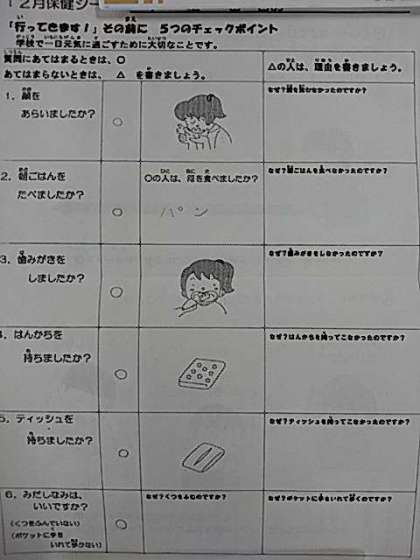 12月保健シー
「行ってきます！」その前に　5つのチェックポイント
学校で一日元気に過ごすために大切なことです。
質問にあてはまるときは、○
あてはまらないときは、△　を書きましょう。
△の人は、理由を書きましょう。
1．顔を
あらいましたか？
○
なぜ？顔を洗わなかったのですか？
2．朝ごはんを
たべましたか？
○
○の人は、何を食べましたか？
パン
なぜ？朝ごはんを食べなかったのですか？
3．歯みがきを
しましたか？
○
なぜ？歯みがきをしなかったのですか？
4．はんかちを
持ちましたか？
○
なぜ？はんかちを持ってこなかったのですか？
5．ティッシュを
持ちましたか？
○
なぜ？ティッシュを持ってこなかったのですか？
6．みだしなみは、
いいですか？
(くつをふんでいない)
(ポケットに手を
いれて歩かない)
○
なぜ？くつをふむのですか？
なぜ？ポケットに手をいれて歩くのですか？